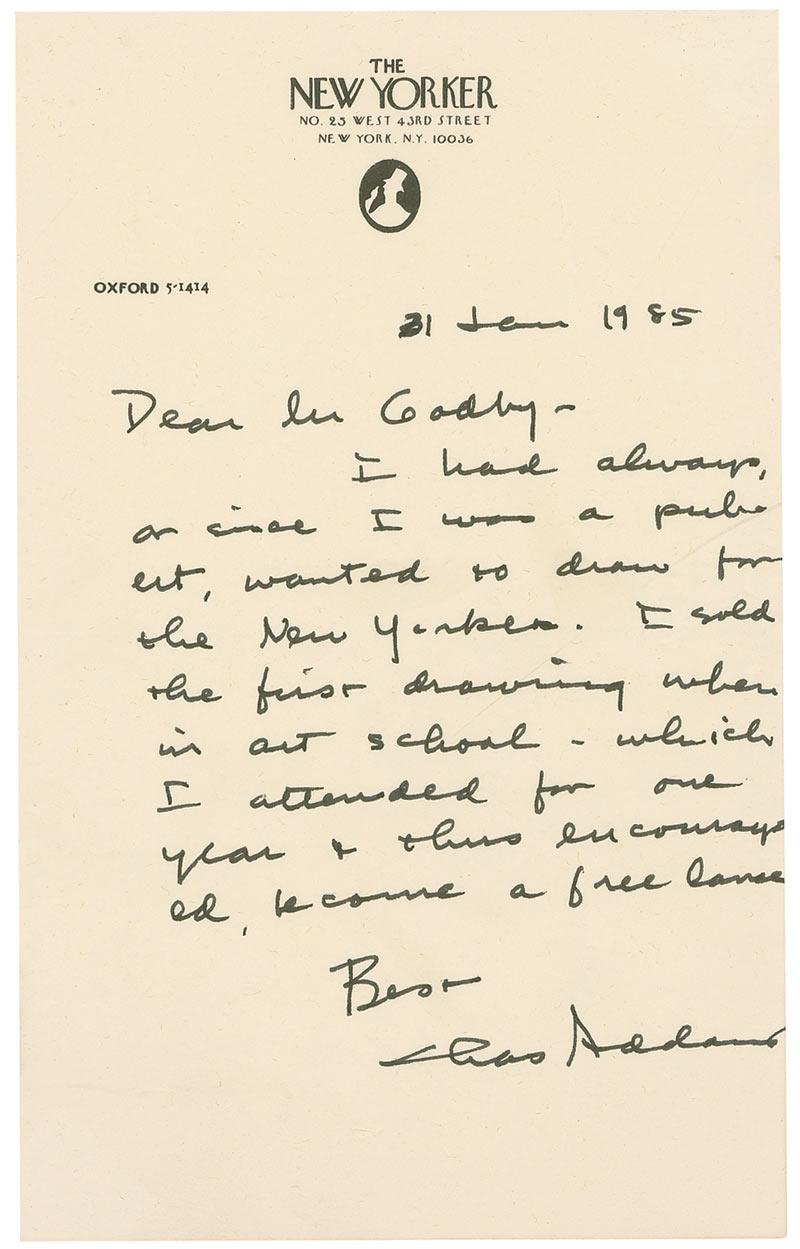 THE
NEW YORKER
NO. 25 WEST 43RD STREET
NEW YORK, N.Y. 10036
OXFORD 5-1414
31 Jan 1985
Dear Mr Godby-
I had always,
or since I was a pube
ert, wanted to draw for
the New Yorker. I sold
the first drawing when
in art school - which
I attended for one
year & thus encourag
ed, become a free lance
Best
Chas Addams